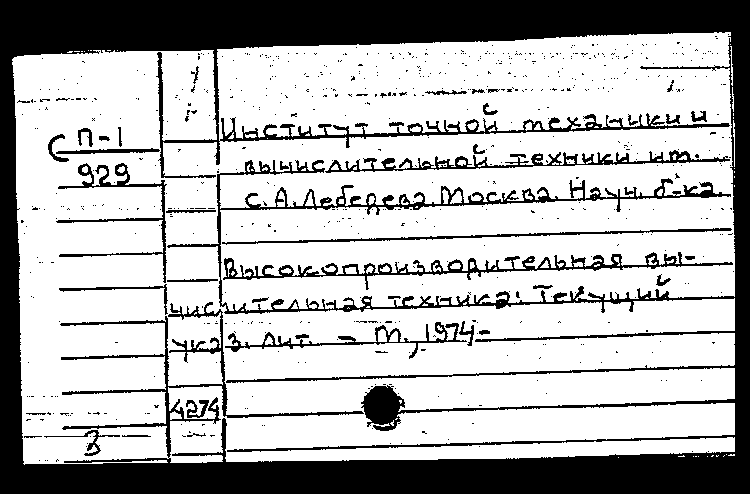 С П-1
929
Институт точной механики и
вычислительной техники им.
С.А.Лебедева.Москва. Науч. б-ка.
Высокопроизводительная вы-
числительная техника: Текущий
указ. лит. – М., 1974-
4274
В